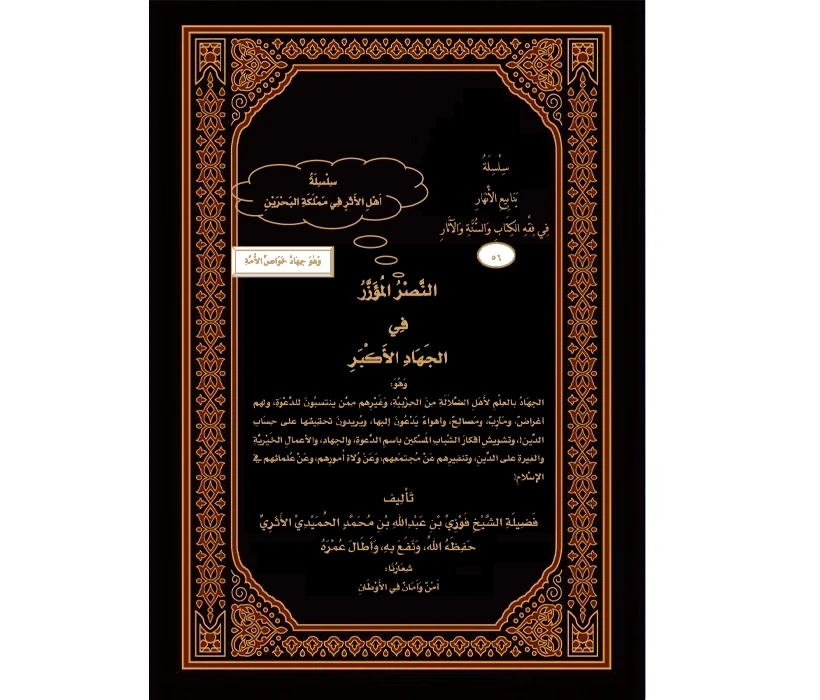 سِلْسِلَةُ
يَنَابِيعِ الْأَنْهَارِ
فِي فِقْهِ الكِتَابِ وَالسُّنَّةِ وَالْآثَارِ
٥٦
سِلْسِلَةُ
أَهْلِ الأَثَرِ فِي مَمْلَكَةِ البَحْرَيْنِ
وَهُوَ جِهَادُ خَوَاصِّ الأُمَّةِ
النَّصْرُ المُؤَزَّرُ
فِي
الجِهَادِ الأَكْبَرِ
وَهُوَ:
الجهادُ بالعِلْمِ لأَهْلِ الضَّلالَةِ مِنَ الحِزْبِيَّةِ، وَغَيْرِهِم مِمَّن ينتسبُونَ للدَّعْوَةِ، ولهم
أغراضٌ، ومَآرِبٌ، ومَصالحٌ، وأهواءٌ يَدْعُونَ إليها، ويُريدونَ تحقيقَها على حسَابِ
الدِّينِ!، وتشويشِ أفكارِ الشَّبابِ المَسْكينِ باسمِ الدَّعوةِ، والجهادِ، والأعمالِ الخَيْريَّةِ
والغيرةِ على الدِّينِ، وتنفيرِهم عَنْ مُجتمَعهِم، وَعَنْ وُلاةِ أمورِهم، وعَنْ عُلمائهم في
الإسْلامِ!
تَأْلِيف
فَضِيلَةِ الشَّيْخِ فَوْزِيِّ بْنِ عَبْدِاللهِ بْنِ مُحَمَّدٍ الحُمَيْدِيِّ الأَثَرِيِّ
حَفِظَهُ اللهُ، وَنَفَعَ بِهِ، وَأَطَالَ عُمْرَهُ
شِعَارُنَا:
أَمْنٌ وَأَمَانٌ فِي الأَوْطَانِ